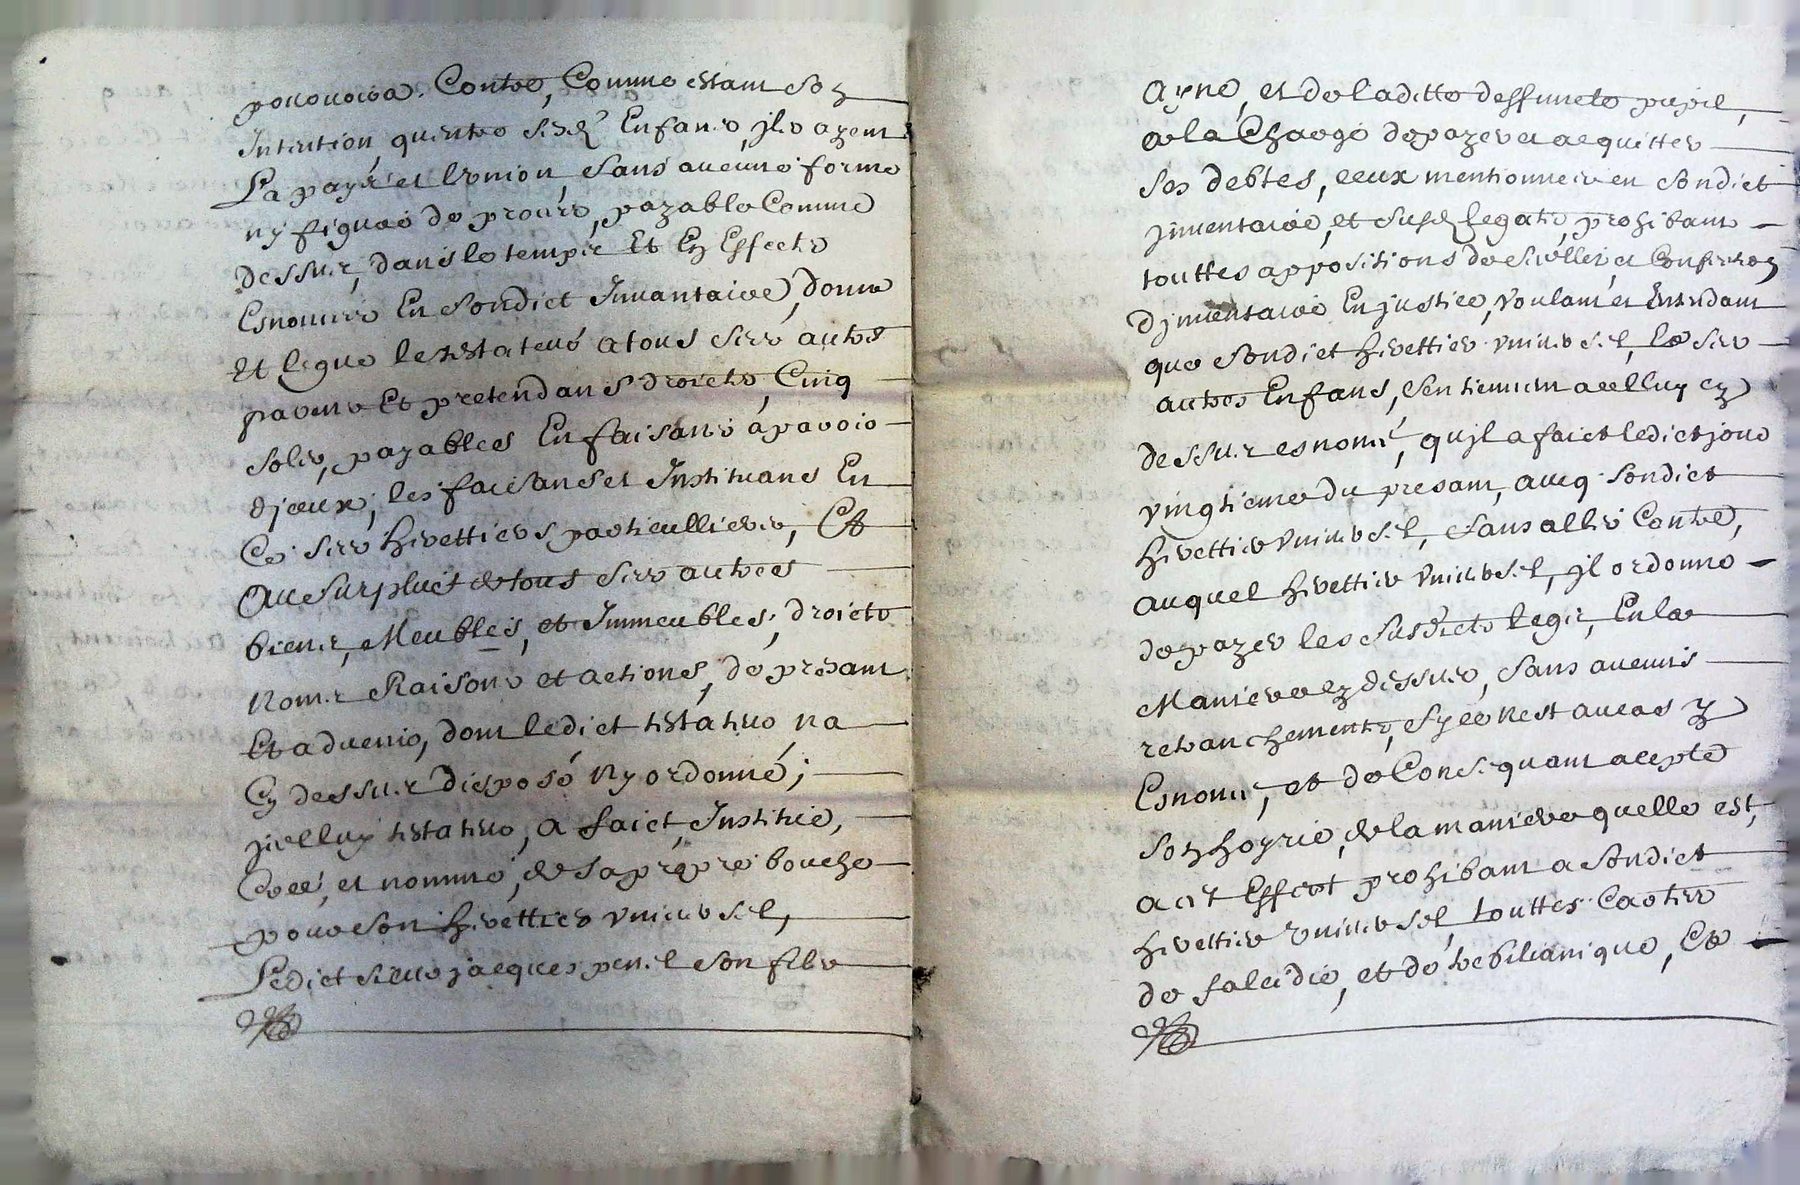 pouuoira Contre, Comme estant son
Intention quentre sesd. Enfans, jls ayent
La payx et Lunion, sans aucune forme
ny figure de proces, payable Comme
dessus, dans le temps Et En Effects
Esnoncés En sondict Inuantaire, donne
Et legue le testateur a tous ses autres
parens Et pretendans droicts, Cinq
sols, payables En faisans aparoir
djceux, les faisans et Instituans En
Ce ses herettiers particulliers, Et
Au surplus de tous ses autres
biens, Meubles, et Immeubles, droicts
Noms Raisons et actions, de presant
Et aduenir, dont ledict testateur na
Cy dessus disposé Ny ordonné;
jcelluy testateur, a faict, Institué,
Créé, et nommé, de sa propre bouche
pour son herettier vniuersel,
Ledict sieur jacques penil son fils
Ayné, et de laditte deffuncte pugil,
a la Charge de payer et acquitter
ses debtes, ceux mentionnes en sondict
jnuentaire, et susd. legats, prohibant
touttes appositions de scellés, et Confection
djnuentaire En justice, voulant et Entendant
que sondict herettier vniuersel, Et ses
autres Enfans, sentiennent a celluy cy
dessus esnoncé, qujl a faict ledict jour
vingtieme du presant, aueq sondict
herettier vniuersel, sans aller Contre,
auquel herettier vniuersel, jl ordonne
de payer les susdicts legs, En la
Maniere cy dessus, sans aucuns
retranchements, sy ce nest au cas y
Esnoncé, et de Consequant accepte
son hoyrie, de la maniere quelle est,
a cet Effect prohibant a sondict
herettier vniuersel, touttes Cartes
de falcidie, et de trebellianique, Et